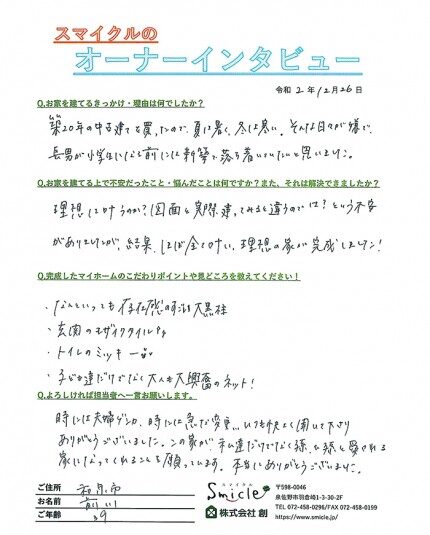 スマイクルの
オーナーインタビュー
令和 2 年 12月 26日
Q.お家を建てるきっかけ・理由は何でしたか？
築20年の中古建てを買ったので、夏は暑く、冬は寒い。そんな日々が嫌で、
長男が小学生になる前には新築で落ち着いていたいと思いました。
Q.お家を建てる上で不安だったこと・悩んだことは何ですか？また、それは解決できましたか？
理想としてかなうのか？図面と実際建ってみると違うのでは？という不安
がありましたが、結果、ほぼ全てかない、理想の家が完成しました！
Q.完成したマイホームのこだわりポイントや見どころを教えてください！
・なんといっても存在感のすごい大黒柱
・玄関のモザイクタイル
・トイレのミッキー
・子ども達だけでなく大人も大興奮のネット！
Q.よろしければ担当者へ一言お願いします。
時には夫婦ゲンカ、時には急な変更、いつも快よく聞いて下さり
ありがとうございました。この家が、私達だけでなく孫、と愛される
家になってくれることを願っています。本当にありがとうございました。
ご住所
お名前 前川
ご年齢 39
スマイクル
Smicle
株式会社 創
〒598-0046
泉佐野市羽倉崎1-3-30-2F
TEL 072-458-0296/FAX 072-458-0199
https://www.smicle.jp/